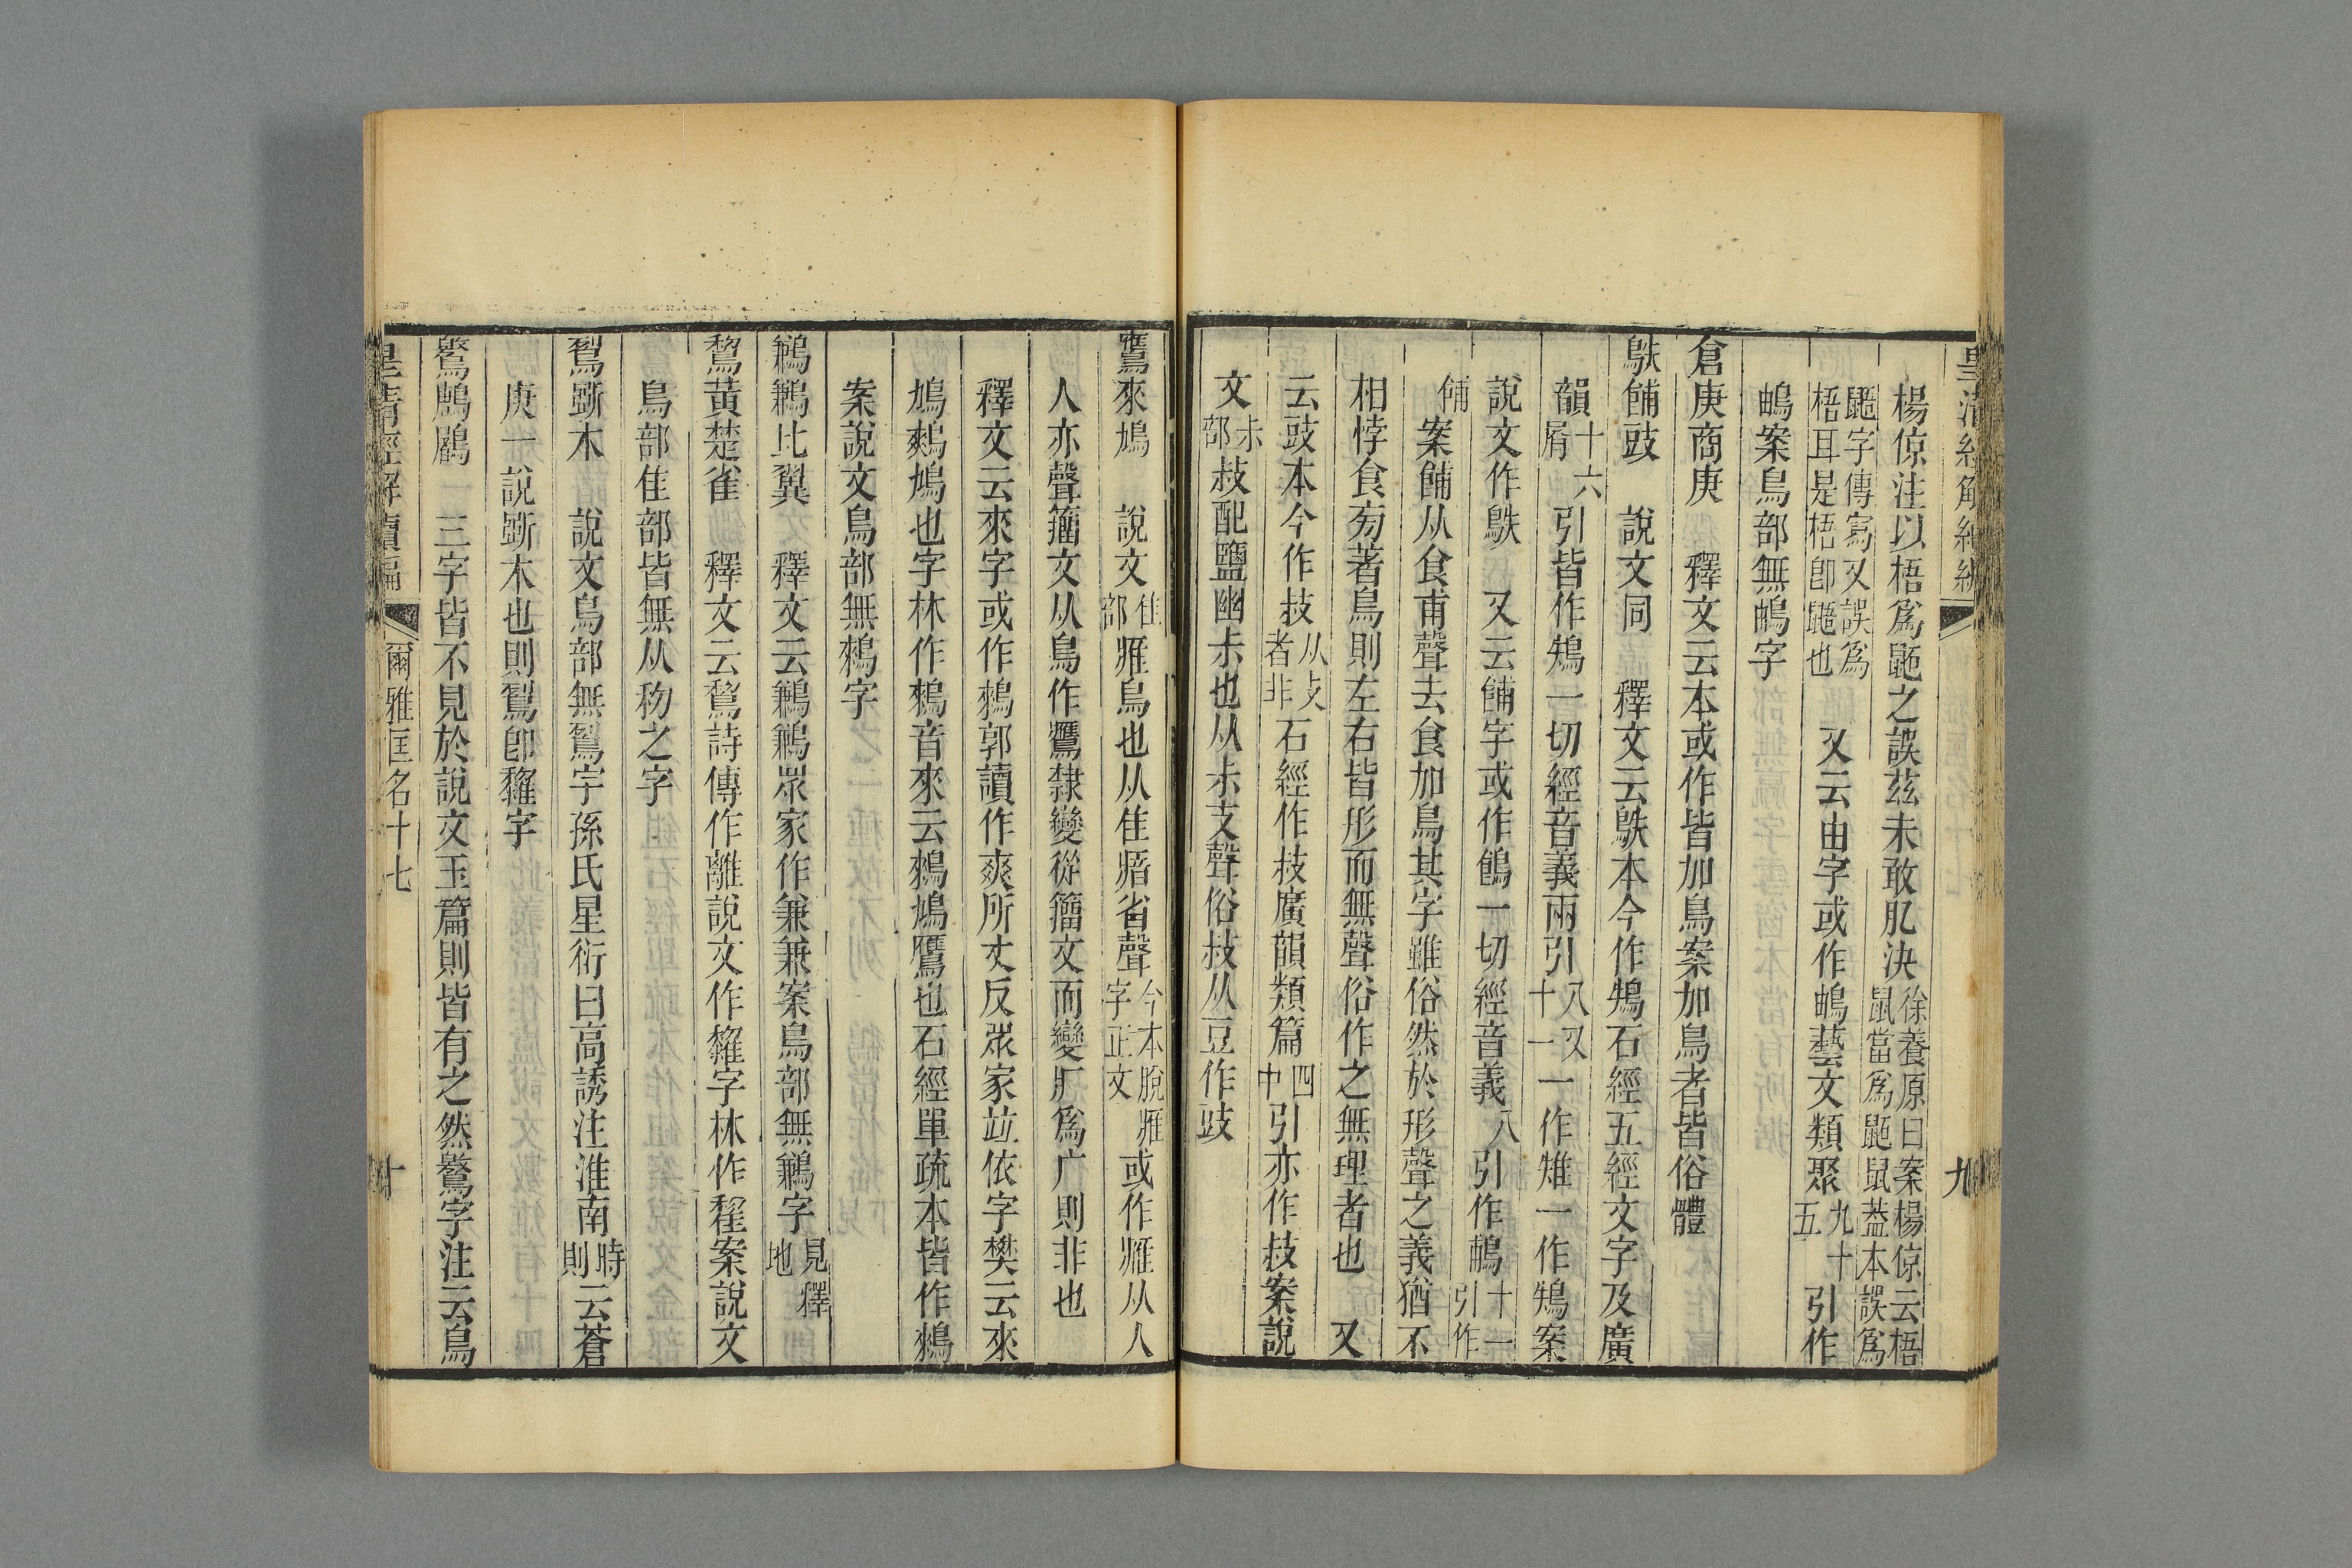 楊倞注以梧爲鼫之誤茲未敢肊決徐養原曰案楊倞云梧鼠當爲鼫鼠葢本誤爲
鼯字傳寫又誤爲梧耳是梧卽鼯也 又云由字或作鷠藝文類聚九十五引作
鷠案鳥部無鷠字
倉庚商庚 釋文云本或作皆加鳥案加鳥者皆俗體
鴃餔敊 說文同 釋文云鴃本今作鴩石經五經文字及廣
韻十六屑引皆作鴩一切經音義兩引八又十一一作䧋一作鴩案
說文作鴃 又云餔字或作䳍一切經音義八引作鵏十一引作
餔案餔从食甫聲去食加鳥其字雖俗然於形聲之義猶不
相悖食㫄著鳥則左右皆形而無聲俗作之無理者也 又
云敊本今作技从攴者非石經作技廣韻類篇四中引亦作敊案說
文尗部敊配鹽幽尗也从尗支聲俗敊从豆作豉
鷹來鳩 說文隹部雁鳥也从隹瘖省聲今本脫雁字正文或作雁从人
人亦聲籒文从鳥作鷹隸變從籒文而變疒爲广則非也
釋文云來字或作鶆郭讀作爽所丈反眾家竝依字樊云來
鳩鷞鳩也字林作鶆音來云鶆鳩鷹也石經單疏本皆作鶆
案說文鳥部無鶆字
鶼鶼比翼 釋文云鶼鶼眾家作兼兼案鳥部無鶼字見釋地
鵹黃楚雀 釋文云鵹詩傳作離說文作䨄字林作䅻案說文
鳥部隹部皆無从秎之字
鴷斲木 說文鳥部無鴷字孫氏星衍曰高誘注淮南時則云蒼
庚一說斲木也則鴷卽䨄字
鷖鶶鷵 三字皆不見於說文玉篇則皆有之然鷖字注云鳥
皇清經解續編 爾雅匡名十七 十
皇清經解續編 九